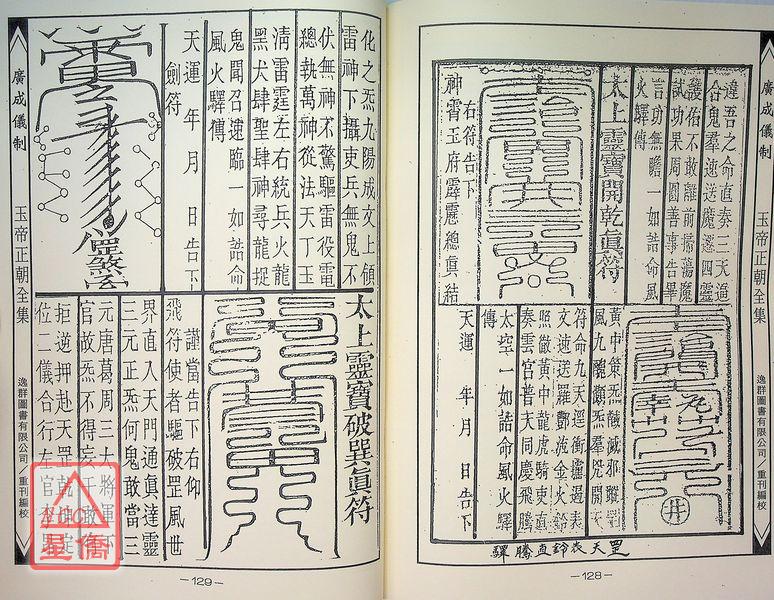 廣成儀制
玉帝正朝全集
逸群圖書有限公司／重刊編校
違吾之命直奏三天遁
合鬼羣速送魔遯四靈
護佑不敢離前掃蕩魔
試功果周圓善事告畢
言功無瞻一如誥命風
火驛傳
太上靈寶開乾眞符
右符告下
神霄玉府霹靂總眞結
黃中策炁馘滅邪蹤
風九醜顯炁羣兇開
符命九天遥衝過表
文速送羅酆流金火鈴
照徹黃中龍虎騎吏直
奏雲官普天同慶飛騰
太空一如誥命風火驛
傳
天運 年 月 日告下
罡天表鈴直騰驛
—128—
化之炁九陽成文上領
雷神下攝吏兵無鬼不
伏無神不驚驅雷役電
總執萬神從法天丁玉
淸雷霆左右統兵火龍
黑犬肆聖肆神尋龍捉
鬼聞召速臨一如誥命
風火驛傳
天運 年 月 日告下
劍符
太上靈寶破巽眞符
謹當告下右仰
飛符使者驅破罡風世
界直入天門通眞達靈
三元正炁何鬼敢當三
元唐葛周三大將軍下
官故炁不得妄干敢
拒逆押赴天罡乾坤定
位二儀合行左官
廣成儀制
玉帝正朝全集
逸群圖書有限公司／重刊編校
星僑
—129—